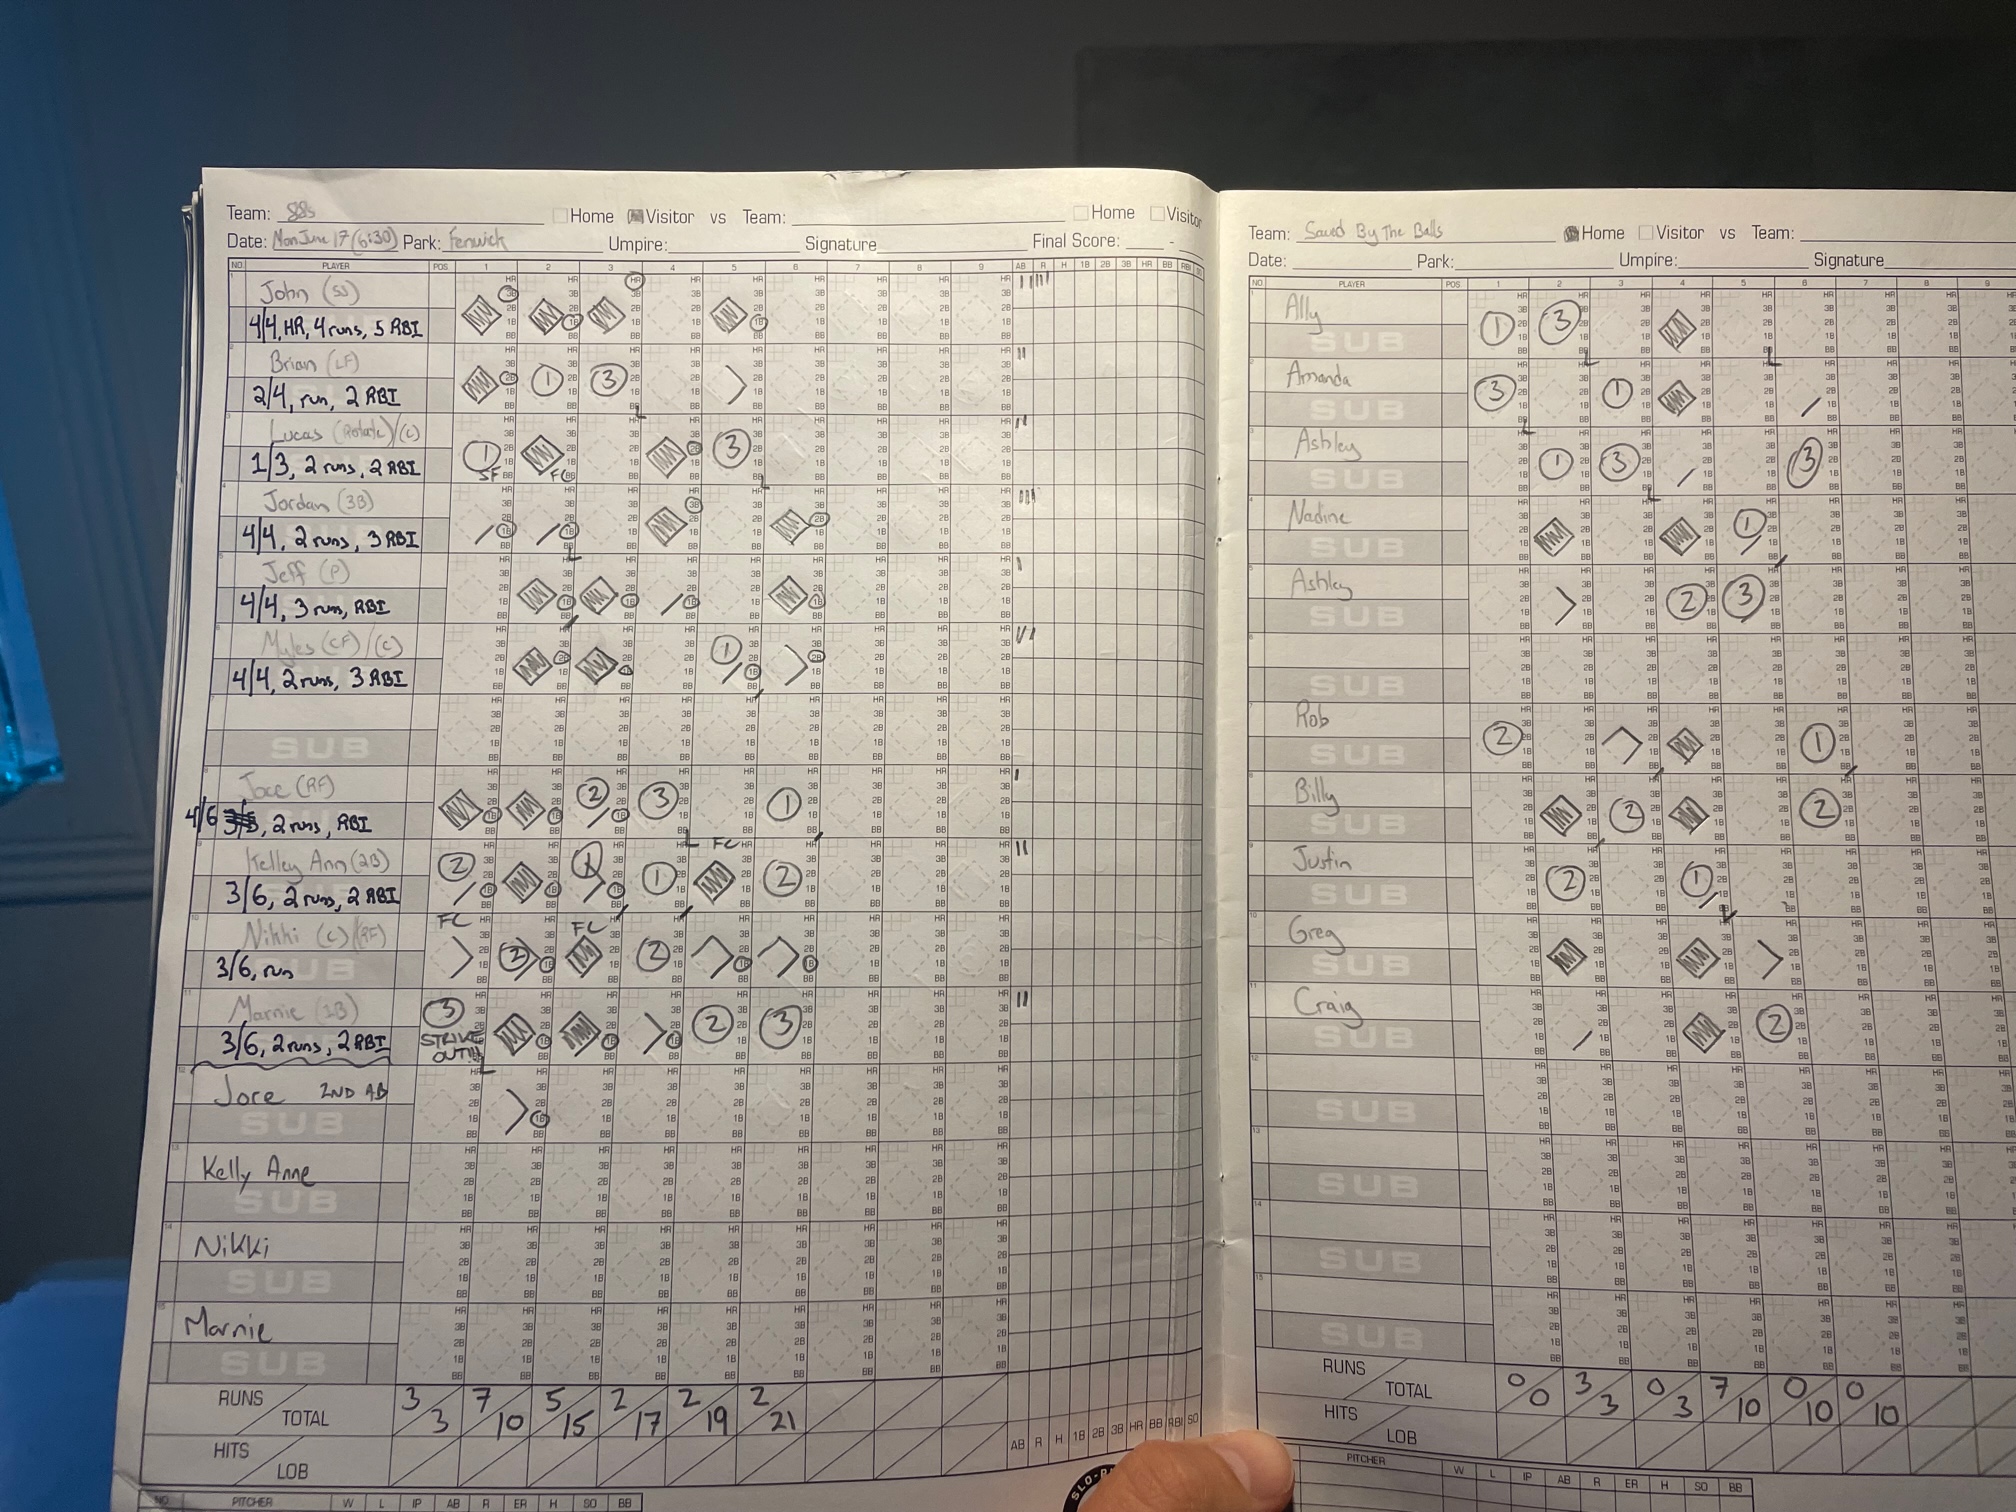 Team: SBs Home Visitor vs Team: Home Visitor
Date: Mon June 17 (6:30) Park: Fenwick Umpire: Signature Final Score: -
NO. PLAYER POS 1 2 3 4 5 6 7 8 9 AB R H 1B 2B 3B HR BB RBI SO
John (SS)
4/4, HR, 4 runs, 5 RBI
Brian (LF)
2/4, run, 2 RBI
Lucas (Rotate) (C)
1/3, 2 runs, 2 RBI
1 SF FC 3
Jordan (3B)
4/4, 2 runs, 3 RBI
Jeff (P)
4/4, 3 runs, RBI
Myles (CF) / (C)
4/4, 2 runs, 3 RBI
SUB
Joce (RF)
4/6, 2 runs, RBI
2 3 1
Kelley Ann (2B)
3/6, 2 runs, 2 RBI
2 1 1 FC 2
Nikki (C) (RF)
3/6, run
FC 2 FC 2
Marnie (1B)
3/6, 2 runs, 2 RBI
3 STRIKE OUT!!! 2 3
Joce 2ND AB
SUB
Kelly Anne
SUB
Nikki
SUB
Marnie
SUB
RUNS 3 7 5 2 2 2
TOTAL 3 10 15 17 19 21
HITS
LOB
AB R H 1B 2B 3B HR BB RBI SO
NO. PITCHER W L IP AB R ER H SO BB
Team: Saved By The Balls Home Visitor vs Team:
Date: Park: Umpire: Signature
NO. PLAYER POS 1 2 3 4 5 6 7 8 9
Ally
SUB
1 3
Amanda
SUB
3 1
Ashley
SUB
1 3 3
Nadine
SUB
1
Ashley
SUB
2 3
SUB
Rob
SUB
2 1
Billy
SUB
2 2
Justin
SUB
2 1
Greg
SUB
Craig
SUB
2
SUB
SUB
SUB
SUB
RUNS 0 3 0 7 0 0
TOTAL 0 3 3 10 10 10
HITS
LOB
PITCHER W L IP AB R ER H SO BB